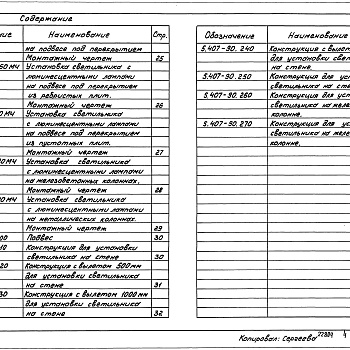 Содержание
ние Наименование Стр.
на подвесе под перекрытием
Монтажный чертеж 25
50МЧ Установка светильника с
люминесцентными лампами
на подвесе под перекрытием
из ребристых плит.
Монтажный чертеж 26
0МЧ Установка светильника
с люминесцентными лампами
на подвесе под перекрытием
из пустотных плит.
Монтажный чертеж 27
0МЧ Установка светильника
с люминесцентными лампами
на железобетонных колоннах.
Монтажный чертеж 28
0МЧ Установка светильника
с люминесцентными лампами
на металлических колоннах.
Монтажный чертеж 29
00 Подвес 30
10 Конструкция для установки
светильника на стене 30
20 Конструкция с вылетом 500мм
для установки светильника
на стене 31
30 Конструкция с вылетом 1000мм
для установки светильника
на стене 32
Обозначение Наименование
5.407-90.240 Конструкция с вылето
для установки свет
на стене.
5.407-90.250 Конструкция для уста
светильника на стен
5.407-90.260 Конструкция для уст
светильника на желе
колонне.
5.407-90.270 Конструкция для уст
светильника на мета
колонне.
Копировал: Сергеева 22804 4